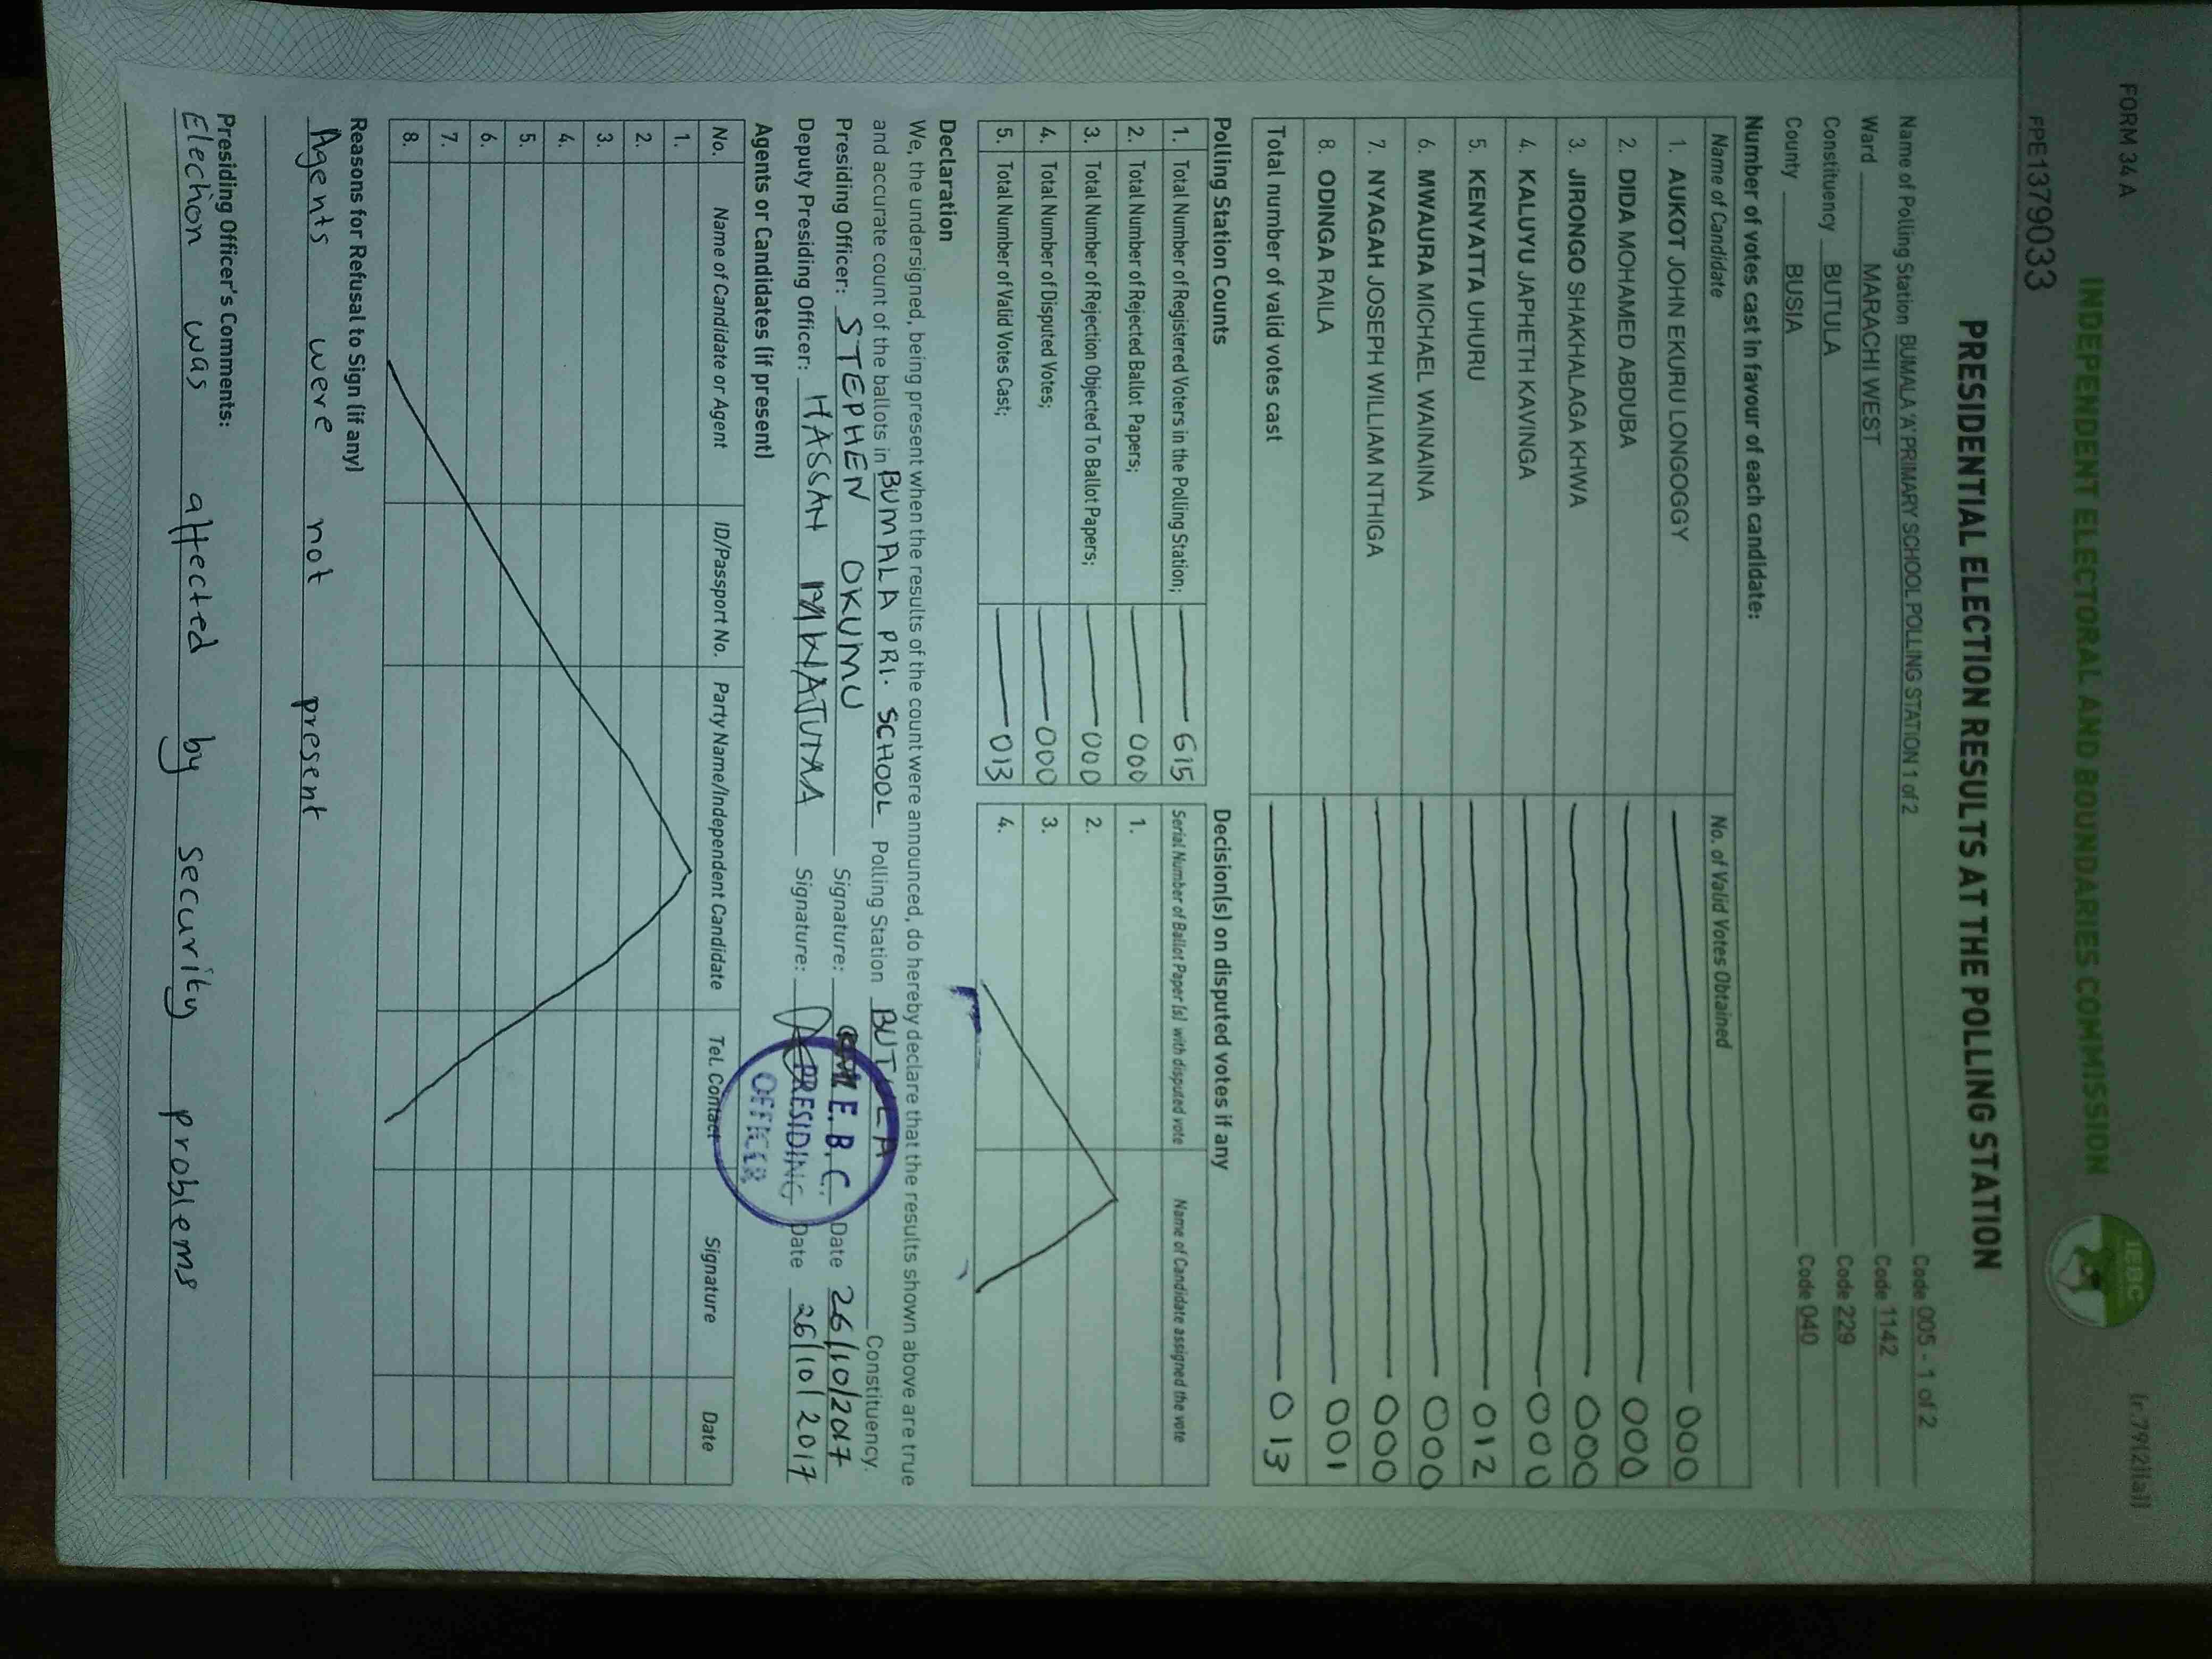 FORM 34 A
(r.79(2)(a))
INDEPENDENT ELECTORAL AND BOUNDARIES COMMISSION
IEBC
FPE1379033
PRESIDENTIAL ELECTION RESULTS AT THE POLLING STATION
Name of Polling Station BUMALA 'A' PRIMARY SCHOOL POLLING STATION 1 of 2 Code 005 - 1 of 2
Ward MARACHI WEST Code 1142
Constituency BUTULA Code 229
County BUSIA Code 040
Number of votes cast in favour of each candidate:
Name of Candidate No. of Valid Votes Obtained
1. AUKOT JOHN EKURU LONGOGGY 000
2. DIDA MOHAMED ABDUBA 000
3. JIRONGO SHAKHALAGA KHWA 000
4. KALUYU JAPHETH KAVINGA 000
5. KENYATTA UHURU 012
6. MWAURA MICHAEL WAINAINA 000
7. NYAGAH JOSEPH WILLIAM NTHIGA 000
8. ODINGA RAILA 001
Total number of valid votes cast 013
Polling Station Counts Decision(s) on disputed votes if any
1. Total Number of Registered Voters in the Polling Station; 615
2. Total Number of Rejected Ballot Papers; 000
3. Total Number of Rejection Objected To Ballot Papers; 000
4. Total Number of Disputed Votes; 000
5. Total Number of Valid Votes Cast; 013
Serial Number of Ballot Paper (s) with disputed vote Name of Candidate assigned the vote
1.
2.
3.
4.
Declaration
We, the undersigned, being present when the results of the count were announced, do hereby declare that the results shown above are true
and accurate count of the ballots in BUMALA PRI. SCHOOL Polling Station BUTULA Constituency.
Presiding Officer: STEPHEN OKUMU Signature: Date 26/10/2017
Deputy Presiding Officer: HASSAN Signature: Date 26/10/2017
E.B.C.
PRESIDING
OFFICER
Agents or Candidates (if present)
No. Name of Candidate or Agent ID/Passport No. Party Name/Independent Candidate Tel. Contact Signature Date
1.
2.
3.
4.
5.
6.
7.
8.
Reasons for Refusal to Sign (if any)
Agents were not present
Presiding Officer's Comments:
Election was affected by security problems